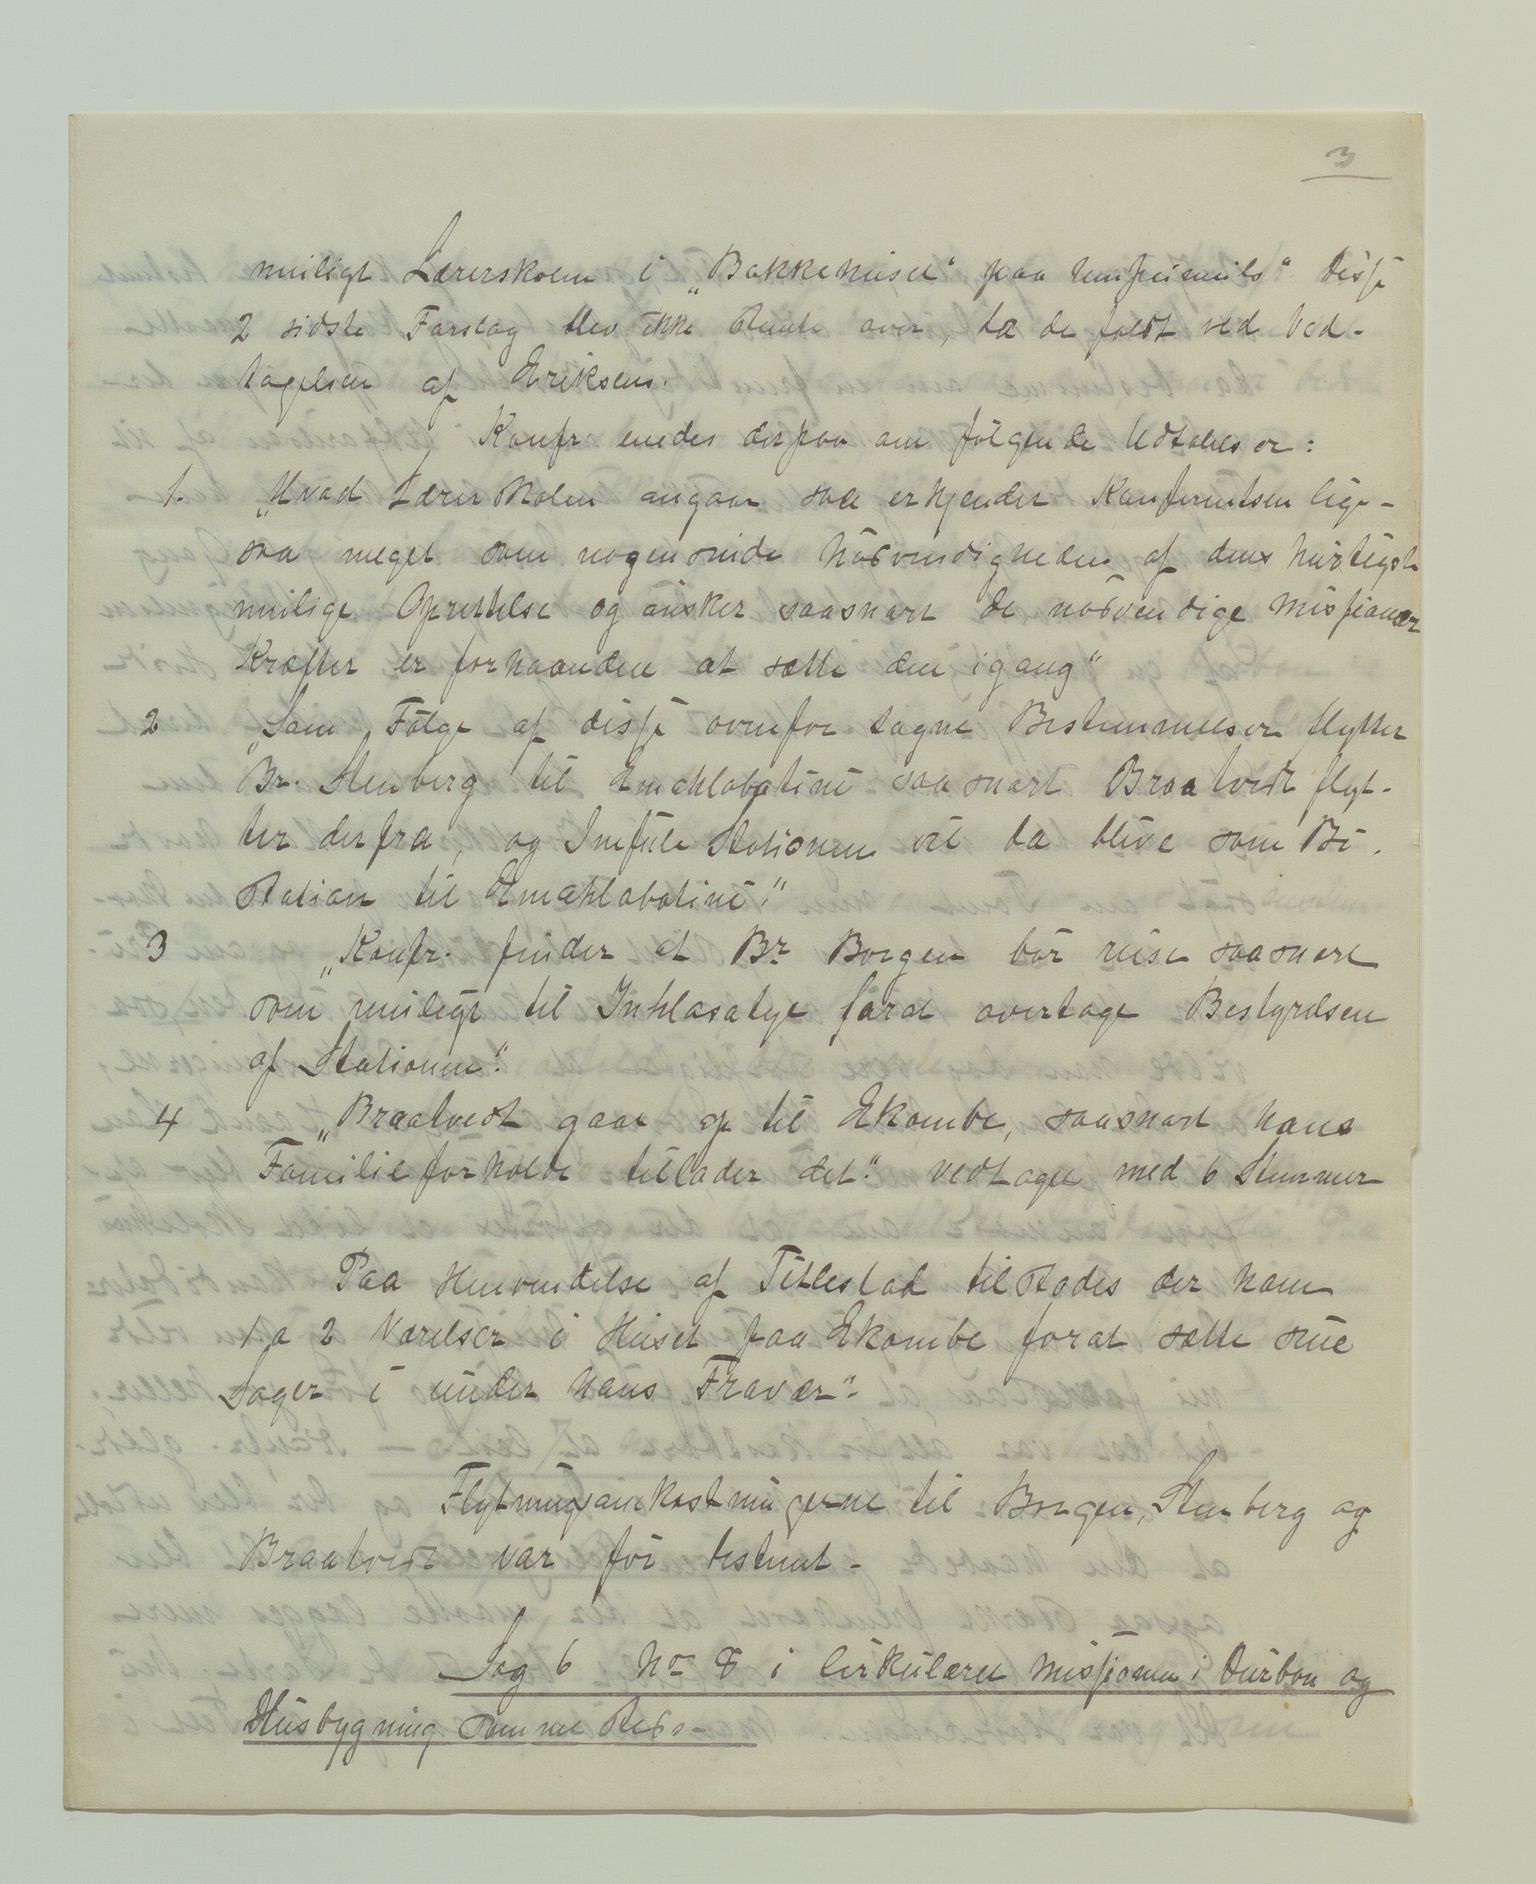 3
muligt Lærerskolen i „Bakkehuset“ paa Umpumulo“ Disse
2 sidste Forslag blev ikke stemt over, da de faldt ved Ved-
tagelsen af Eriksens.
Konfr. enedes derpaa om følgende Udtalelser:
1. „Hvad Lærerskolen angaar saa erkjender Konferentsen lige-
saa meget som nogensinde Nødvendigheden af dens hurtigst
mulige Oprettelse og ønsker saasnart de nødvendige Missionær
Kræfter er forhaanden at sætte den igang“
2 „Som Følge af disse ovenfor tagne Bestemmelser flytter
Br. Stenberg til Emahlabatini saa snart Braatvedt flyt-
ter derfra, og Imfule Stationen vil da blive som Bi-
station til Emahlabatini.“
3 „Konfr. finder at Br. Borgen bør reise saa snart
som muligt til Inhlasatye forat overtage Bestyrelsen
af Stationen“.
4 „Braatvedt gaar op til Ekombe, saasnart hans
Familieforholde tillader det.“ Vedtaget med 6 Stemmer
Paa Henvendelse af Titlestad tilstodes der ham
1 a 2 Værelser i Huset paa Ekombe forat sætte sine
Sager i under hans Fravær“.
Flytningsomkostningerne til Borgen, Stenberg og
Braatvedt var før bestemt.-
Sag 6 No 8 i Cirkulæret Missionen i Durban og
Husbygning samme Steds-